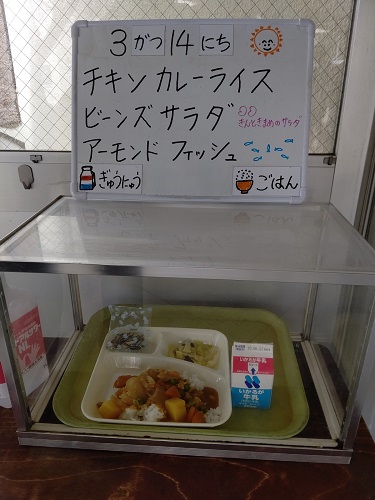 3がつ14にち
チキンカレーライス
ビーンズサラダ
きんときまめのサラダ
アーモンドフィッシュ
ぎゅうにゅう
ごはん
いかるが牛乳
いかるが
牛乳